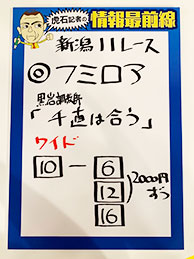 虎石記者の
情報最前線
新潟11レース
◎フミロア
黒岩調教師
「千直は合う」
ワイド
10 — 6
12
16
2000円ずつ